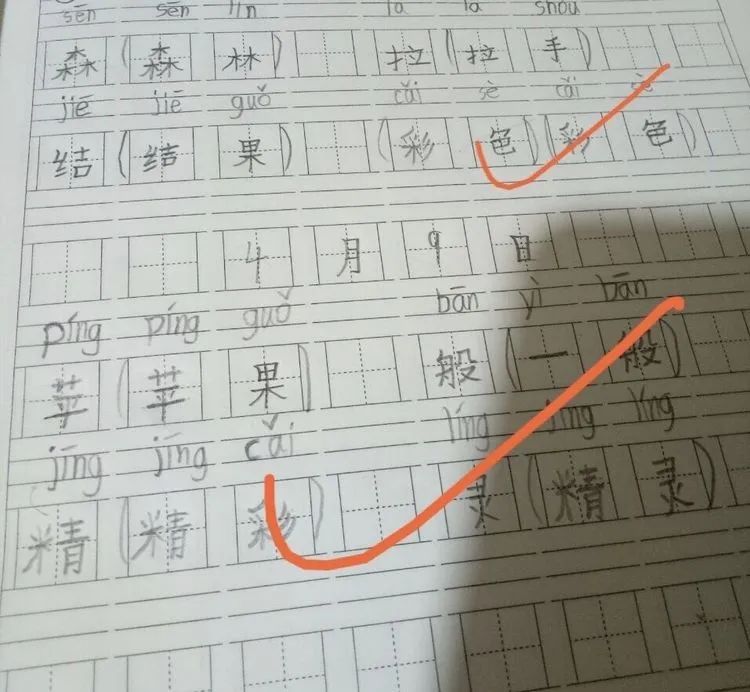 sēn sēn lín lā lā shǒu
森(森林) 拉(拉手)
jiē jiē guǒ cǎi sè cǎi sè
结(结果) (彩色)(彩色)
4月9日
píng píng guǒ bān yì bān
苹(苹果) 般(一般)
jīng jīng cǎi líng jīng líng
精(精彩) 灵(精灵)